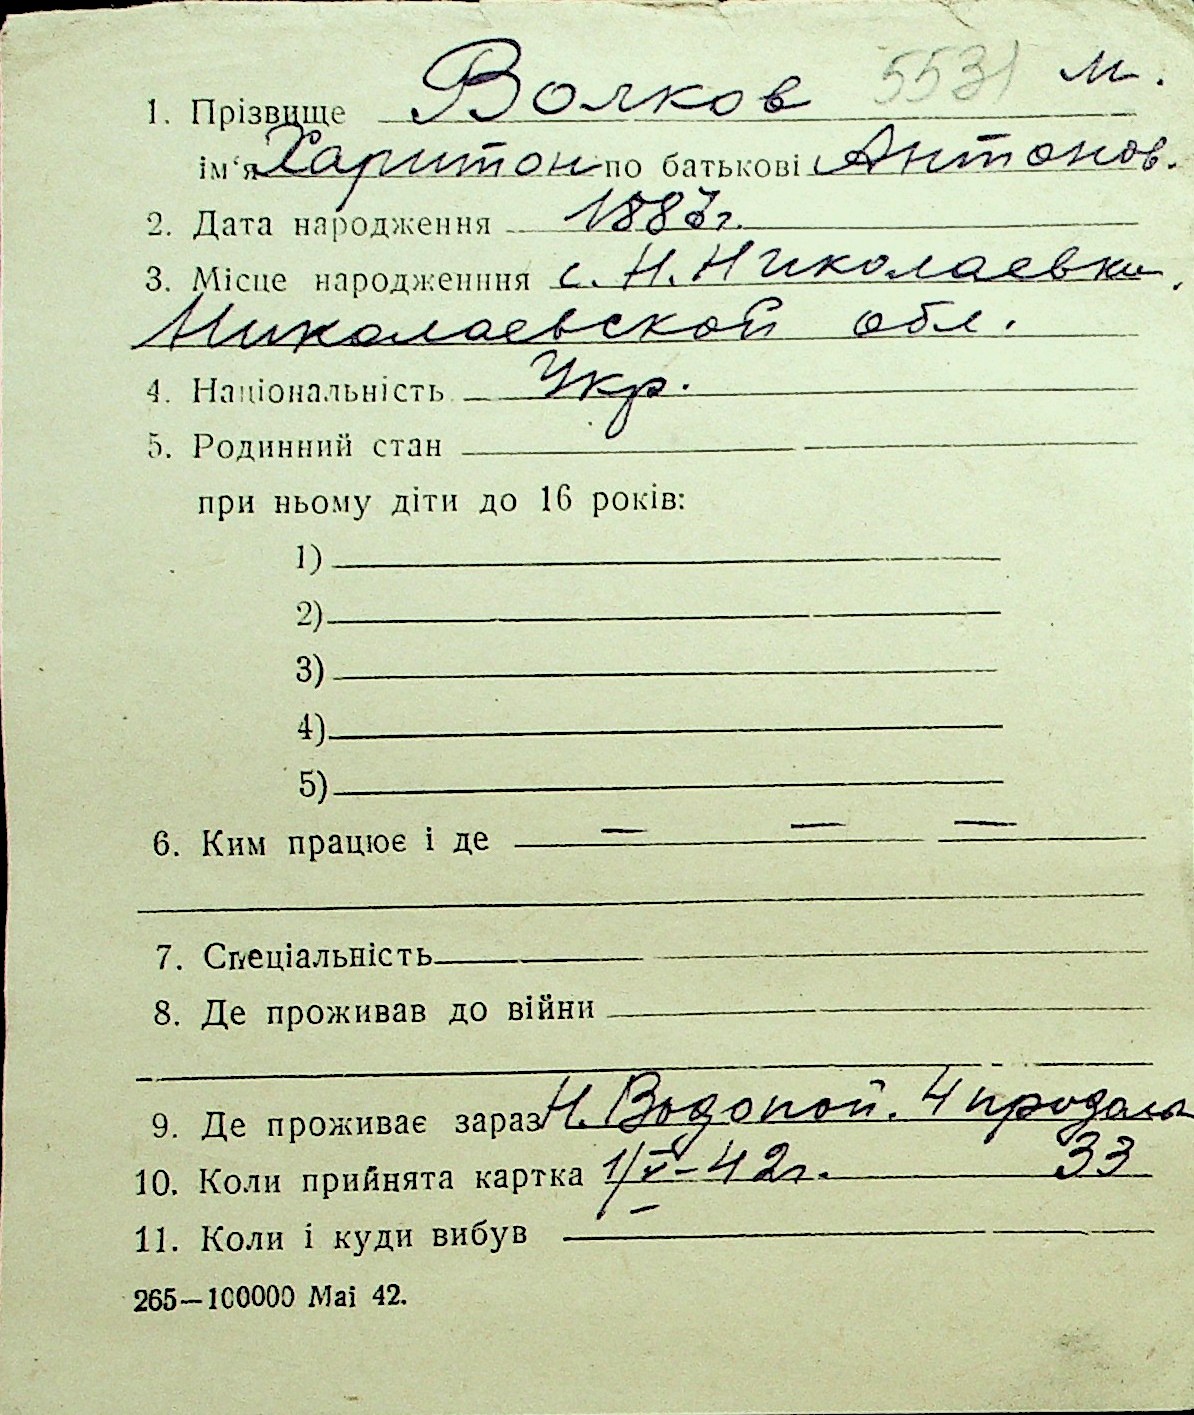 1. Прізвище Волков 5531 м.
ім‘я Харитон по батькові Антонов.
2. Дата народження г.
3. Місце народженння с. Н. Николаевки,
Николаевской обл.
4. Національність Укр.
5. Родинний стан
при ньому діти до 16 років:
1)
2)
3)
4)
5)
6. Ким працює і де — — —
7. Спеціальність
8. Де проживав до війни
9. Де проживає зараз Н. Водопой. 4 продоль
10. Коли прийнята картка 1/V-42г. 33
11. Коли і куди вибув —
265—100000 Mai 42.